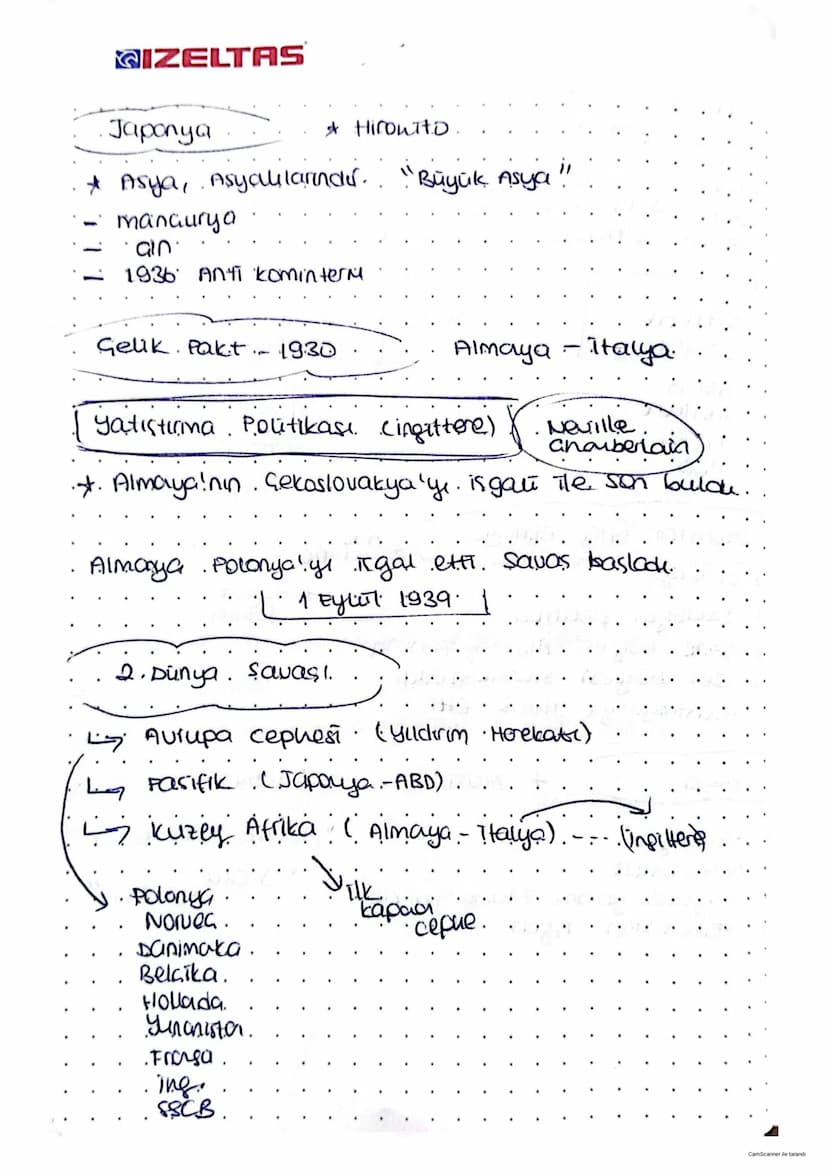 IZELTAS
Japonya * Hirowito
* Asya, Asyalılarındır. "Büyük Asya"
- mançurya
- çin
- 1936 Anti kominterm
Çelik Pakt - 1930 Almaya - İtalya
Yatıştırma Politikası (ingiltere) Neville
Chamberlain
* Almaya'nın Çekoslovakya'yı işgali ile son buldu.
Almaya Polonya'yı işgal etti. Savaş başladı.
1 Eylül 1939
2. Dünya Savaşı.
Avrupa cephesi (Yıldırım Harekatı)
Pasifik (Japonya - ABD)
Kuzey Afrika (Almaya - İtalya) --- (İngiltere)
Polonya
Norveç
Danimaka
Belçika
Hollada
Yunanistan
Fransa
ing.
SSCB
ilk
kapanan
cephe
CamScanner ile tarandı